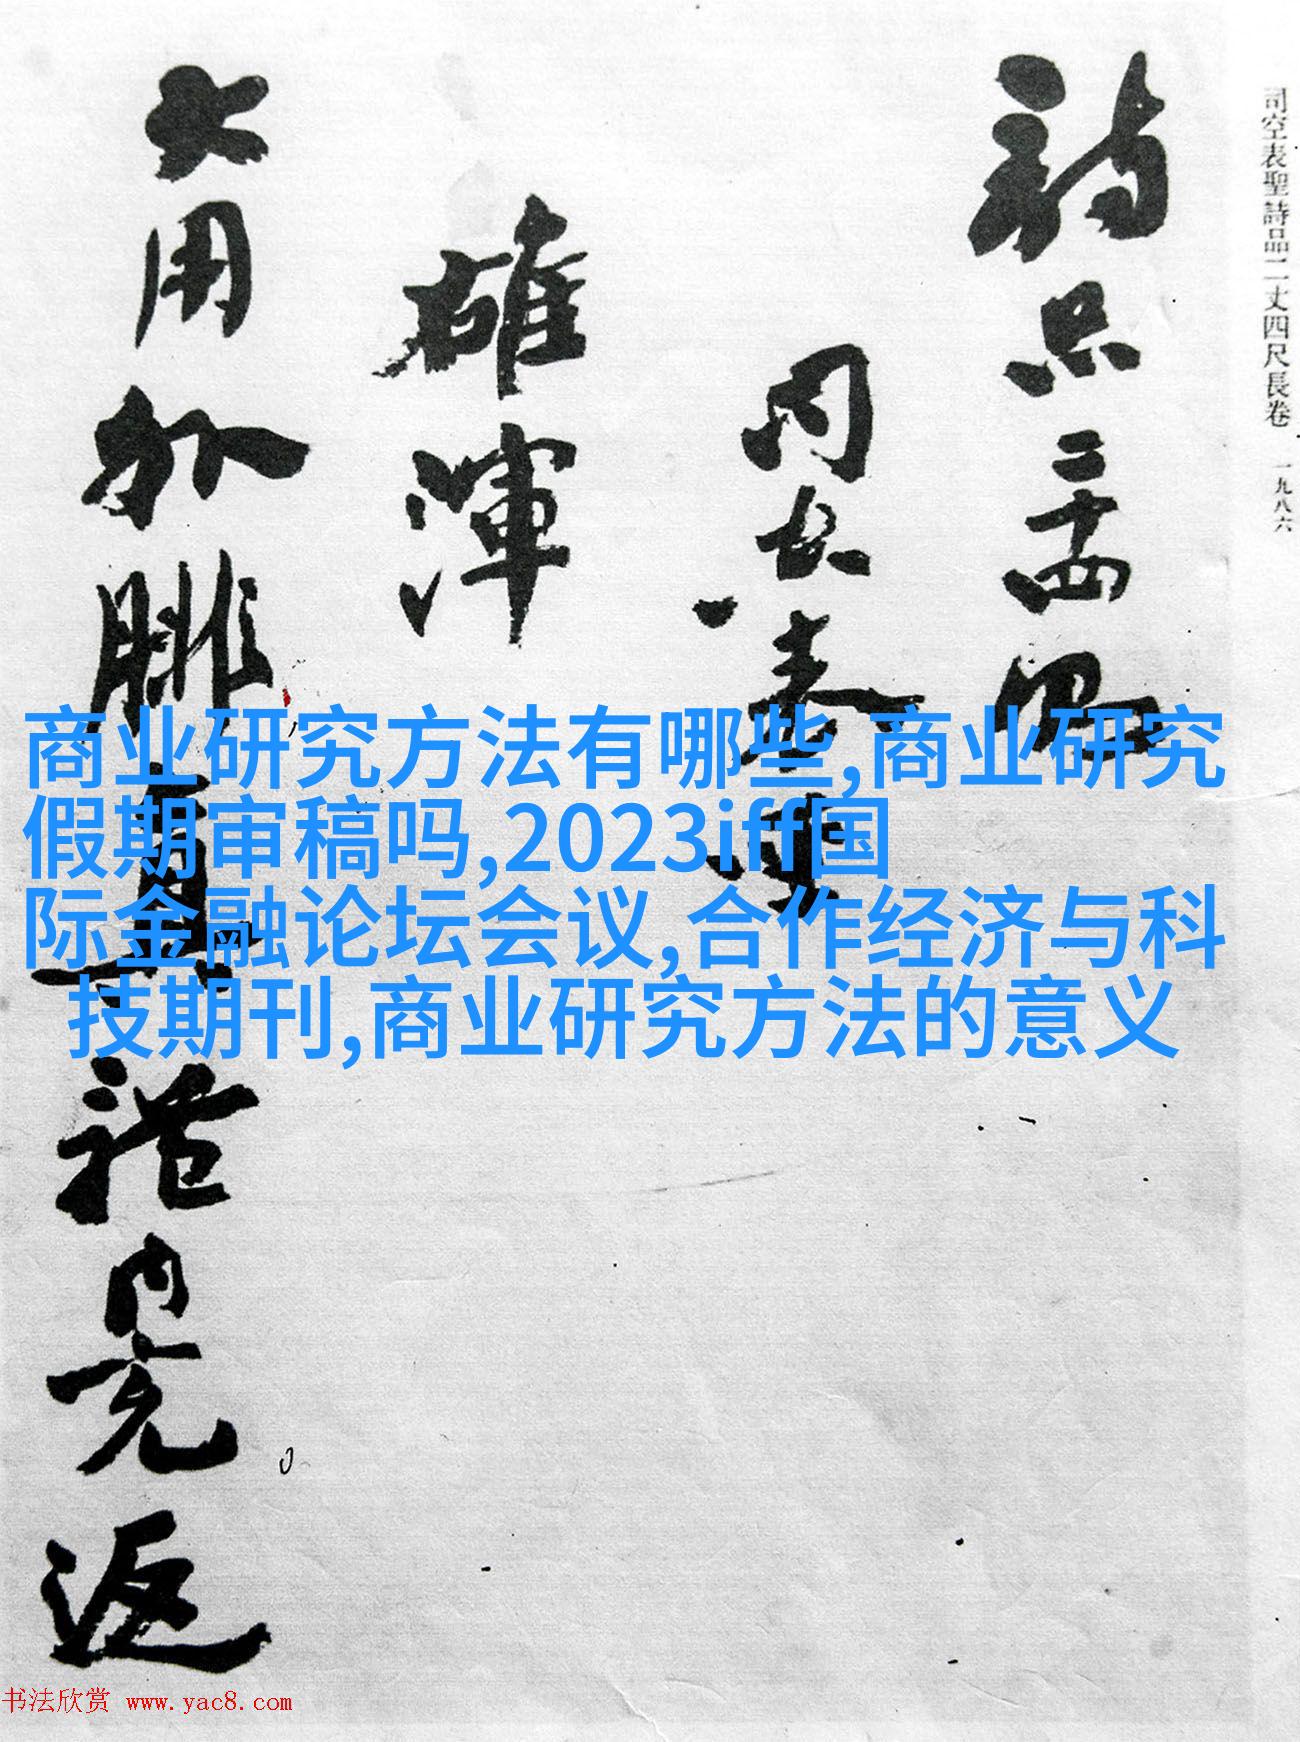 司空表聖詩品二丈四尺長卷 一九八六
詩品二十四則
司空表聖
雄渾
大用外腓真體内充返
商业研究方法有哪些,商业研究
假期审稿吗,2023iff国
际金融论坛会议,合作经济与科
技期刊,商业研究方法的意义
书法欣赏 www.yac8.com